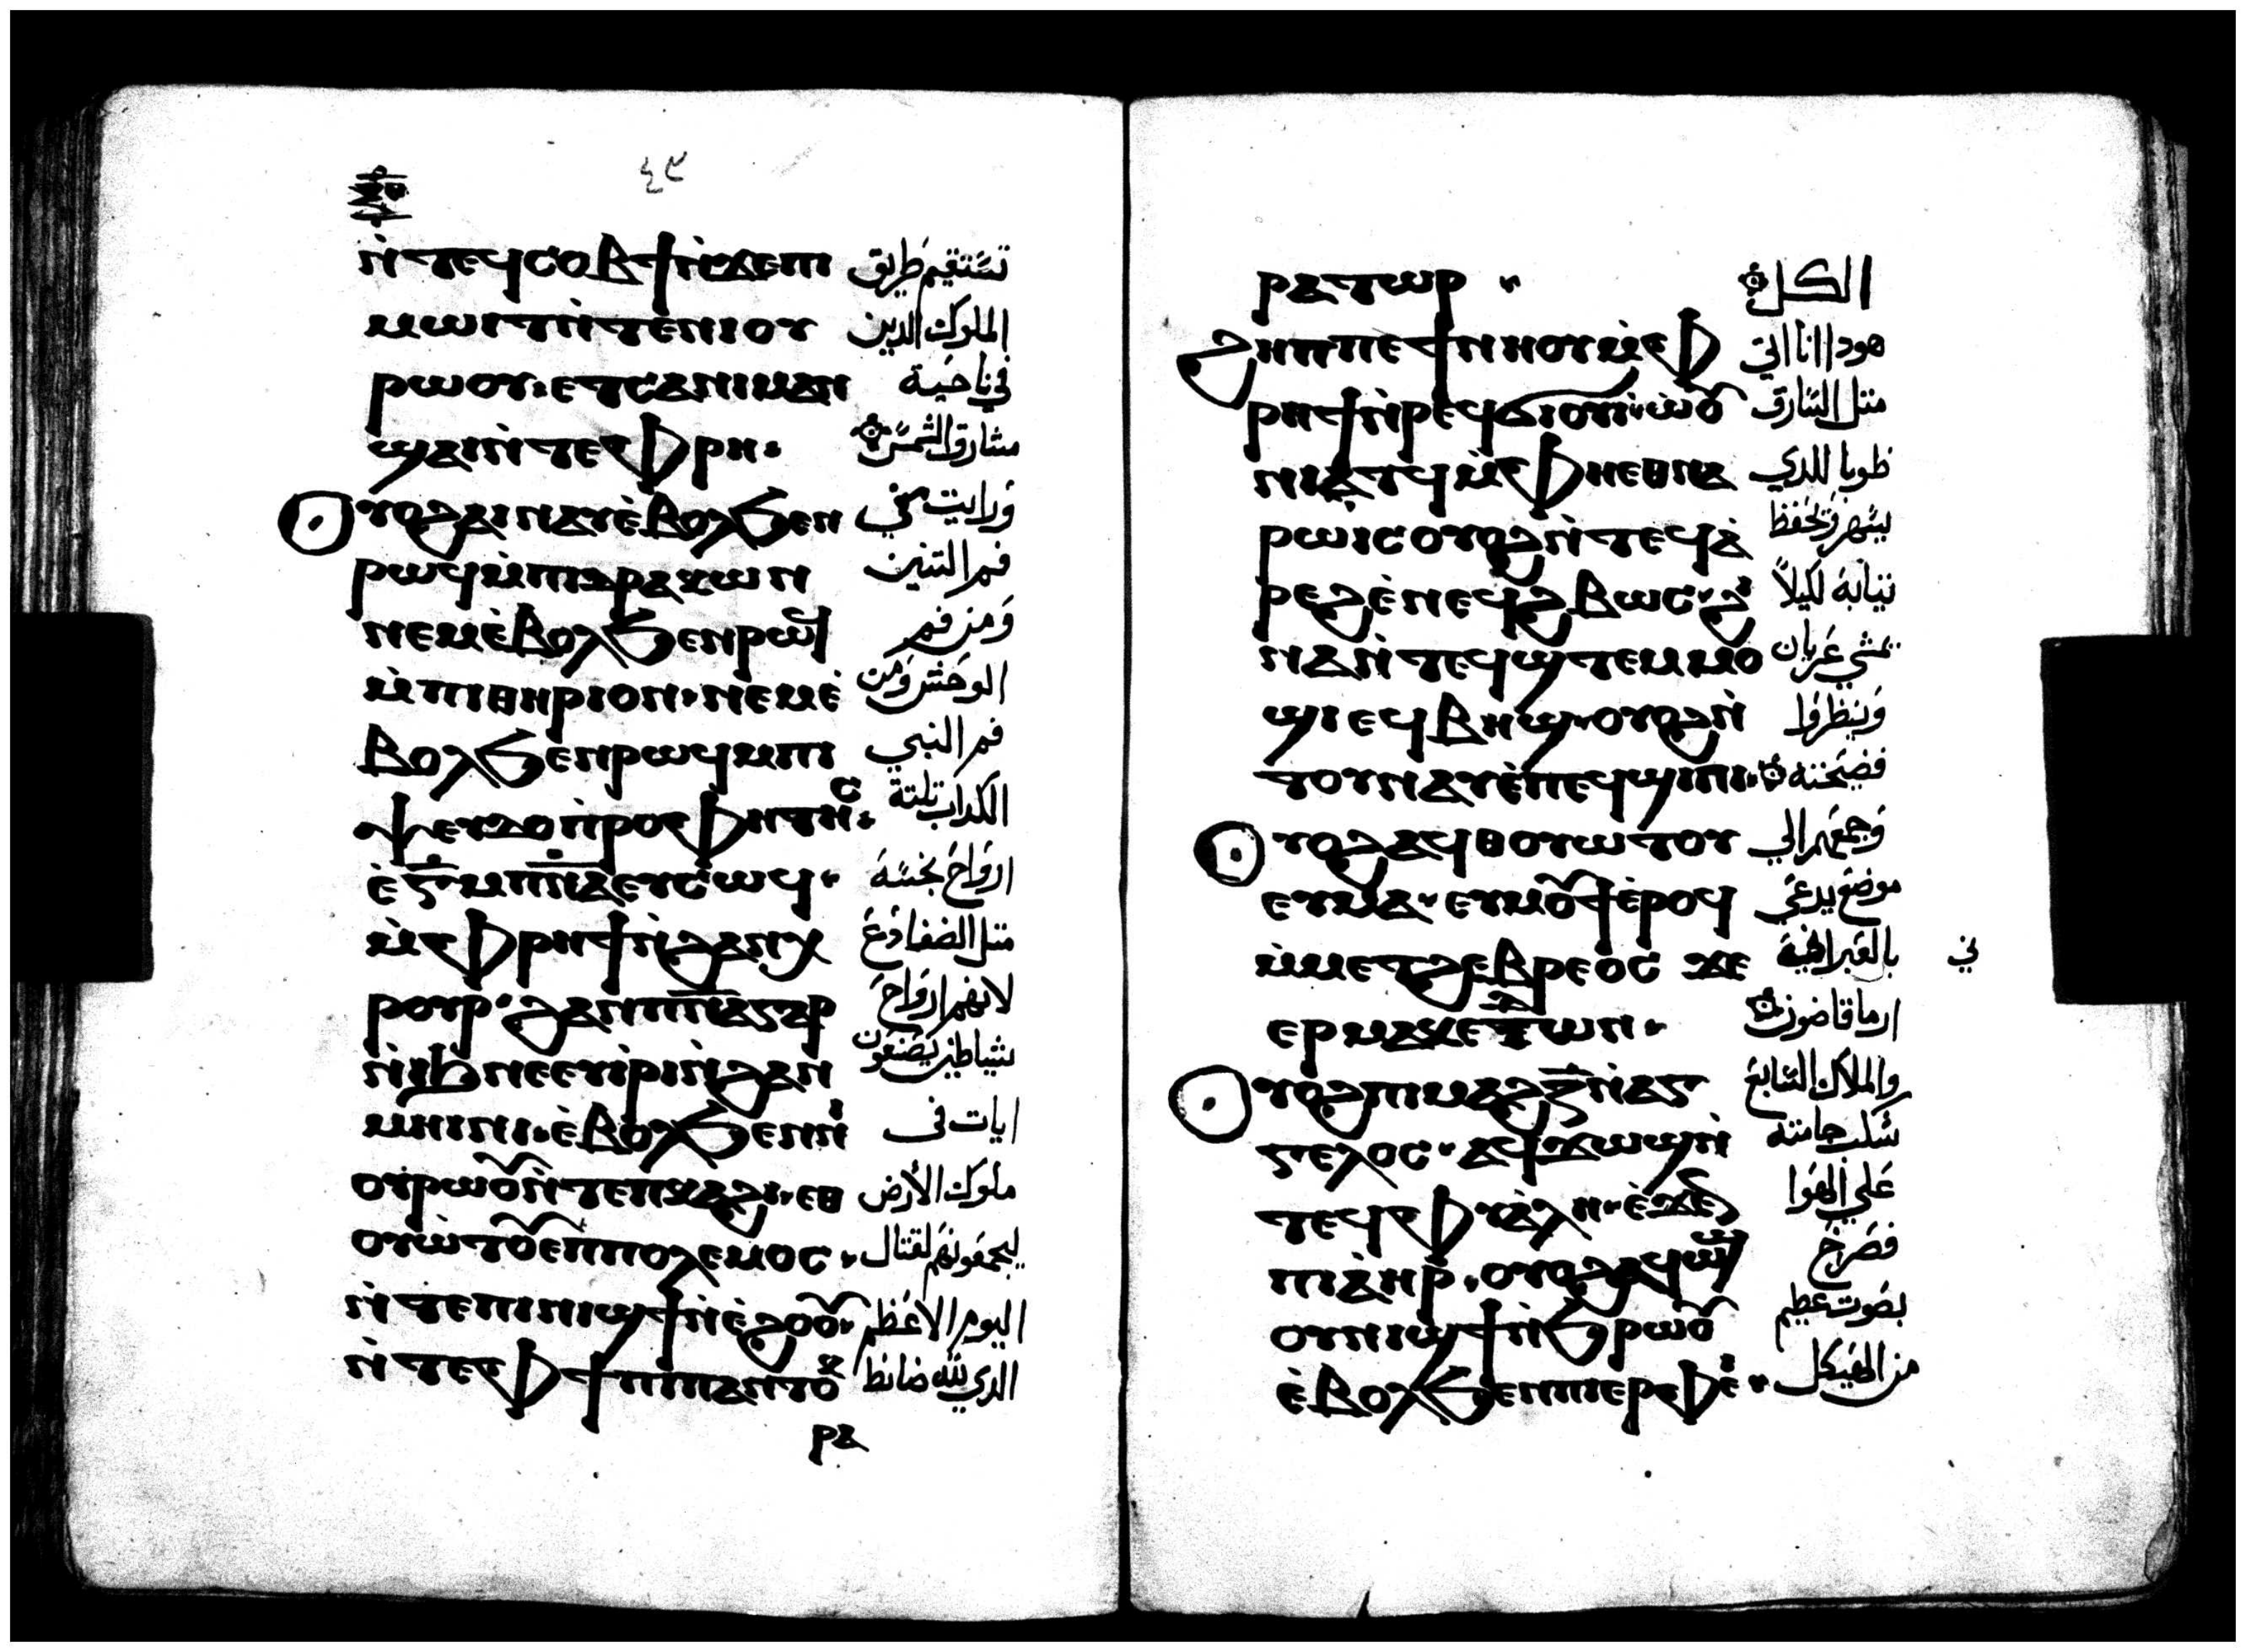 ٤٩
ⲛ̀ⲧⲉϥⲥⲟⲃϯ ⲛ̀ϫⲉⲡⲓ تستقيم طريق
ⲙⲱⲓⲧ ⲛ̀ⲧⲉⲛⲓⲟⲩ الملوك الدين
ⲣⲱⲟⲩ: ⲉⲧⲥⲁⲛⲓⲙⲁⲛ في ناحية
ϣⲁⲓ ⲛ̀ⲧⲉⲫⲣⲏ: مشارق الشمس
ⲟⲩⲟϩ ⲁⲓⲛⲁⲩ ⲉ̀ⲃⲟⲗϧⲉⲛ ورايت في
ⲣⲱϥ ⲙ̀ⲡⲓⲇⲣⲁⲕⲱⲛ فم التنين
ⲛⲉⲙ ⲉ̀ⲃⲟⲗϧⲉⲛ ⲣⲱϥ ومن فم
ⲙ̀ⲡⲓⲑⲏⲣⲓⲟⲛ· ⲛⲉⲙ ⲉ̀ الوحش ومن
ⲃⲟⲗϧⲉⲛ ⲣⲱϥ ⲙⲡⲓ فم النبي
ⲯⲉⲩⲇⲟⲡ̀ⲣⲟⲫⲏⲧⲏⲥ: الكداب تلتة
ⲉ̀ⲅ̅ ⲙⲡ̅ⲛ̅ⲁ̅ ⲉⲩⲥⲱϥ· ارواح نجسه
ⲙ̀ⲫⲣⲏϯ ⲛ̀ϩⲁⲛⲭ متل الضفادع
ⲣⲟⲩⲣ· ϩⲁⲛⲡ̅ⲛ̅ⲁ̅ ⲅⲁⲣ لانهم ارواح
ⲛ̀ⲓϧ ⲛⲉ ⲉⲩⲓ̀ⲣⲓ ⲛ̀ϩⲁⲛ شياطين يصنعون
ⲙⲏⲓⲛⲓ· ⲉ̀ⲃⲟⲗϧⲉⲛ ⲛⲓ ايات في
ⲟⲩⲣⲱⲟⲩ ⲛ̀ⲧⲉⲡⲕⲁϩⲓ· ⲉⲑ ملوك الأرض
ⲟⲩⲱ̀ⲧⲟⲩ ⲉⲡⲡⲟⲗⲉⲙⲟⲥ· ليجمعونهم لقتال
ⲛ̀ⲧⲉⲡⲓⲛⲓϣϯ ⲛ̀ⲉ̀ϩⲟⲟⲩ· اليوم الاعظم
ⲛ̀ⲧⲉⲫϯ ⲡⲓⲡⲁⲛⲧⲟⲕ الدي لله ضابط
ⲣⲁ
ⲣⲁⲧⲱⲣ الكل
ϩⲏⲡⲡⲉ ϯⲛⲏⲟⲩ ⲙ̀ⲫ هودا انا اتي
ⲣⲏϯ ⲛ̀ⲣⲉϥϭⲓⲟⲩⲓ· ⲱ̀ⲟⲩ متل السارق
ⲛⲓⲁⲧϥ ⲙ̀ⲫⲏⲉⲑⲛⲁ طوبا للدي
ⲣⲱⲓⲥ ⲟⲩⲟϩ ⲛ̀ⲧⲉϥⲁ̀ يسهر ويحفظ
ⲣⲉϩ ⲉ̀ⲛⲉϥϩⲃⲱⲥ· ϩⲓ تيابه لكيلا
ⲛⲁ ⲛ̀ⲧⲉϥϣⲧⲉⲙⲙⲟ يمشي عريان
ϣⲓ ⲉϥⲃⲏϣ· ⲟⲩⲟϩ ⲛ̀ وينظروا
ⲧⲟⲩⲛⲁⲩ ⲉ̀ⲡⲉϥϣⲓⲡⲓ· فضيحته
ⲟⲩⲟϩ ⲁϥⲑⲟⲩⲱⲧⲟⲩ وجمعهم الي
ⲉⲩⲙⲁ· ⲉⲩⲙⲟⲩϯ ⲉ̀ⲣⲟϥ موضع يدعي
ⲙ̀ⲙⲉⲧϩⲉⲃⲣⲉⲟⲥ ϫⲉ بالعبرانية
ⲉⲣⲙⲁⲕⲉⲇⲱⲛ· ارماقاضون
ⲟⲩⲟϩ ⲡⲓⲙⲁϩⲍ̅ ⲛ̀ⲁⲅ والملاك السابع
ⲅⲉⲗⲟⲥ· ⲁϥϫⲱϣ ⲛ̀ سكب جامته
ⲧⲉϥⲫⲩⲁ̀ⲗⲏ· ⲉ̀ϫⲉⲛ علي الهوا
ⲡⲓⲁ̀ⲏⲣ· ⲟⲩⲟϩ ⲁϥⲱϣ فصرخ
ⲟⲩⲛⲓϣϯ ⲛ̀ϧⲣⲱⲟⲩ بصوت عظيم
ⲉ̀ⲃⲟⲗϧⲉⲛ ⲡⲓⲉⲣⲫⲉⲓ· من الهيكل